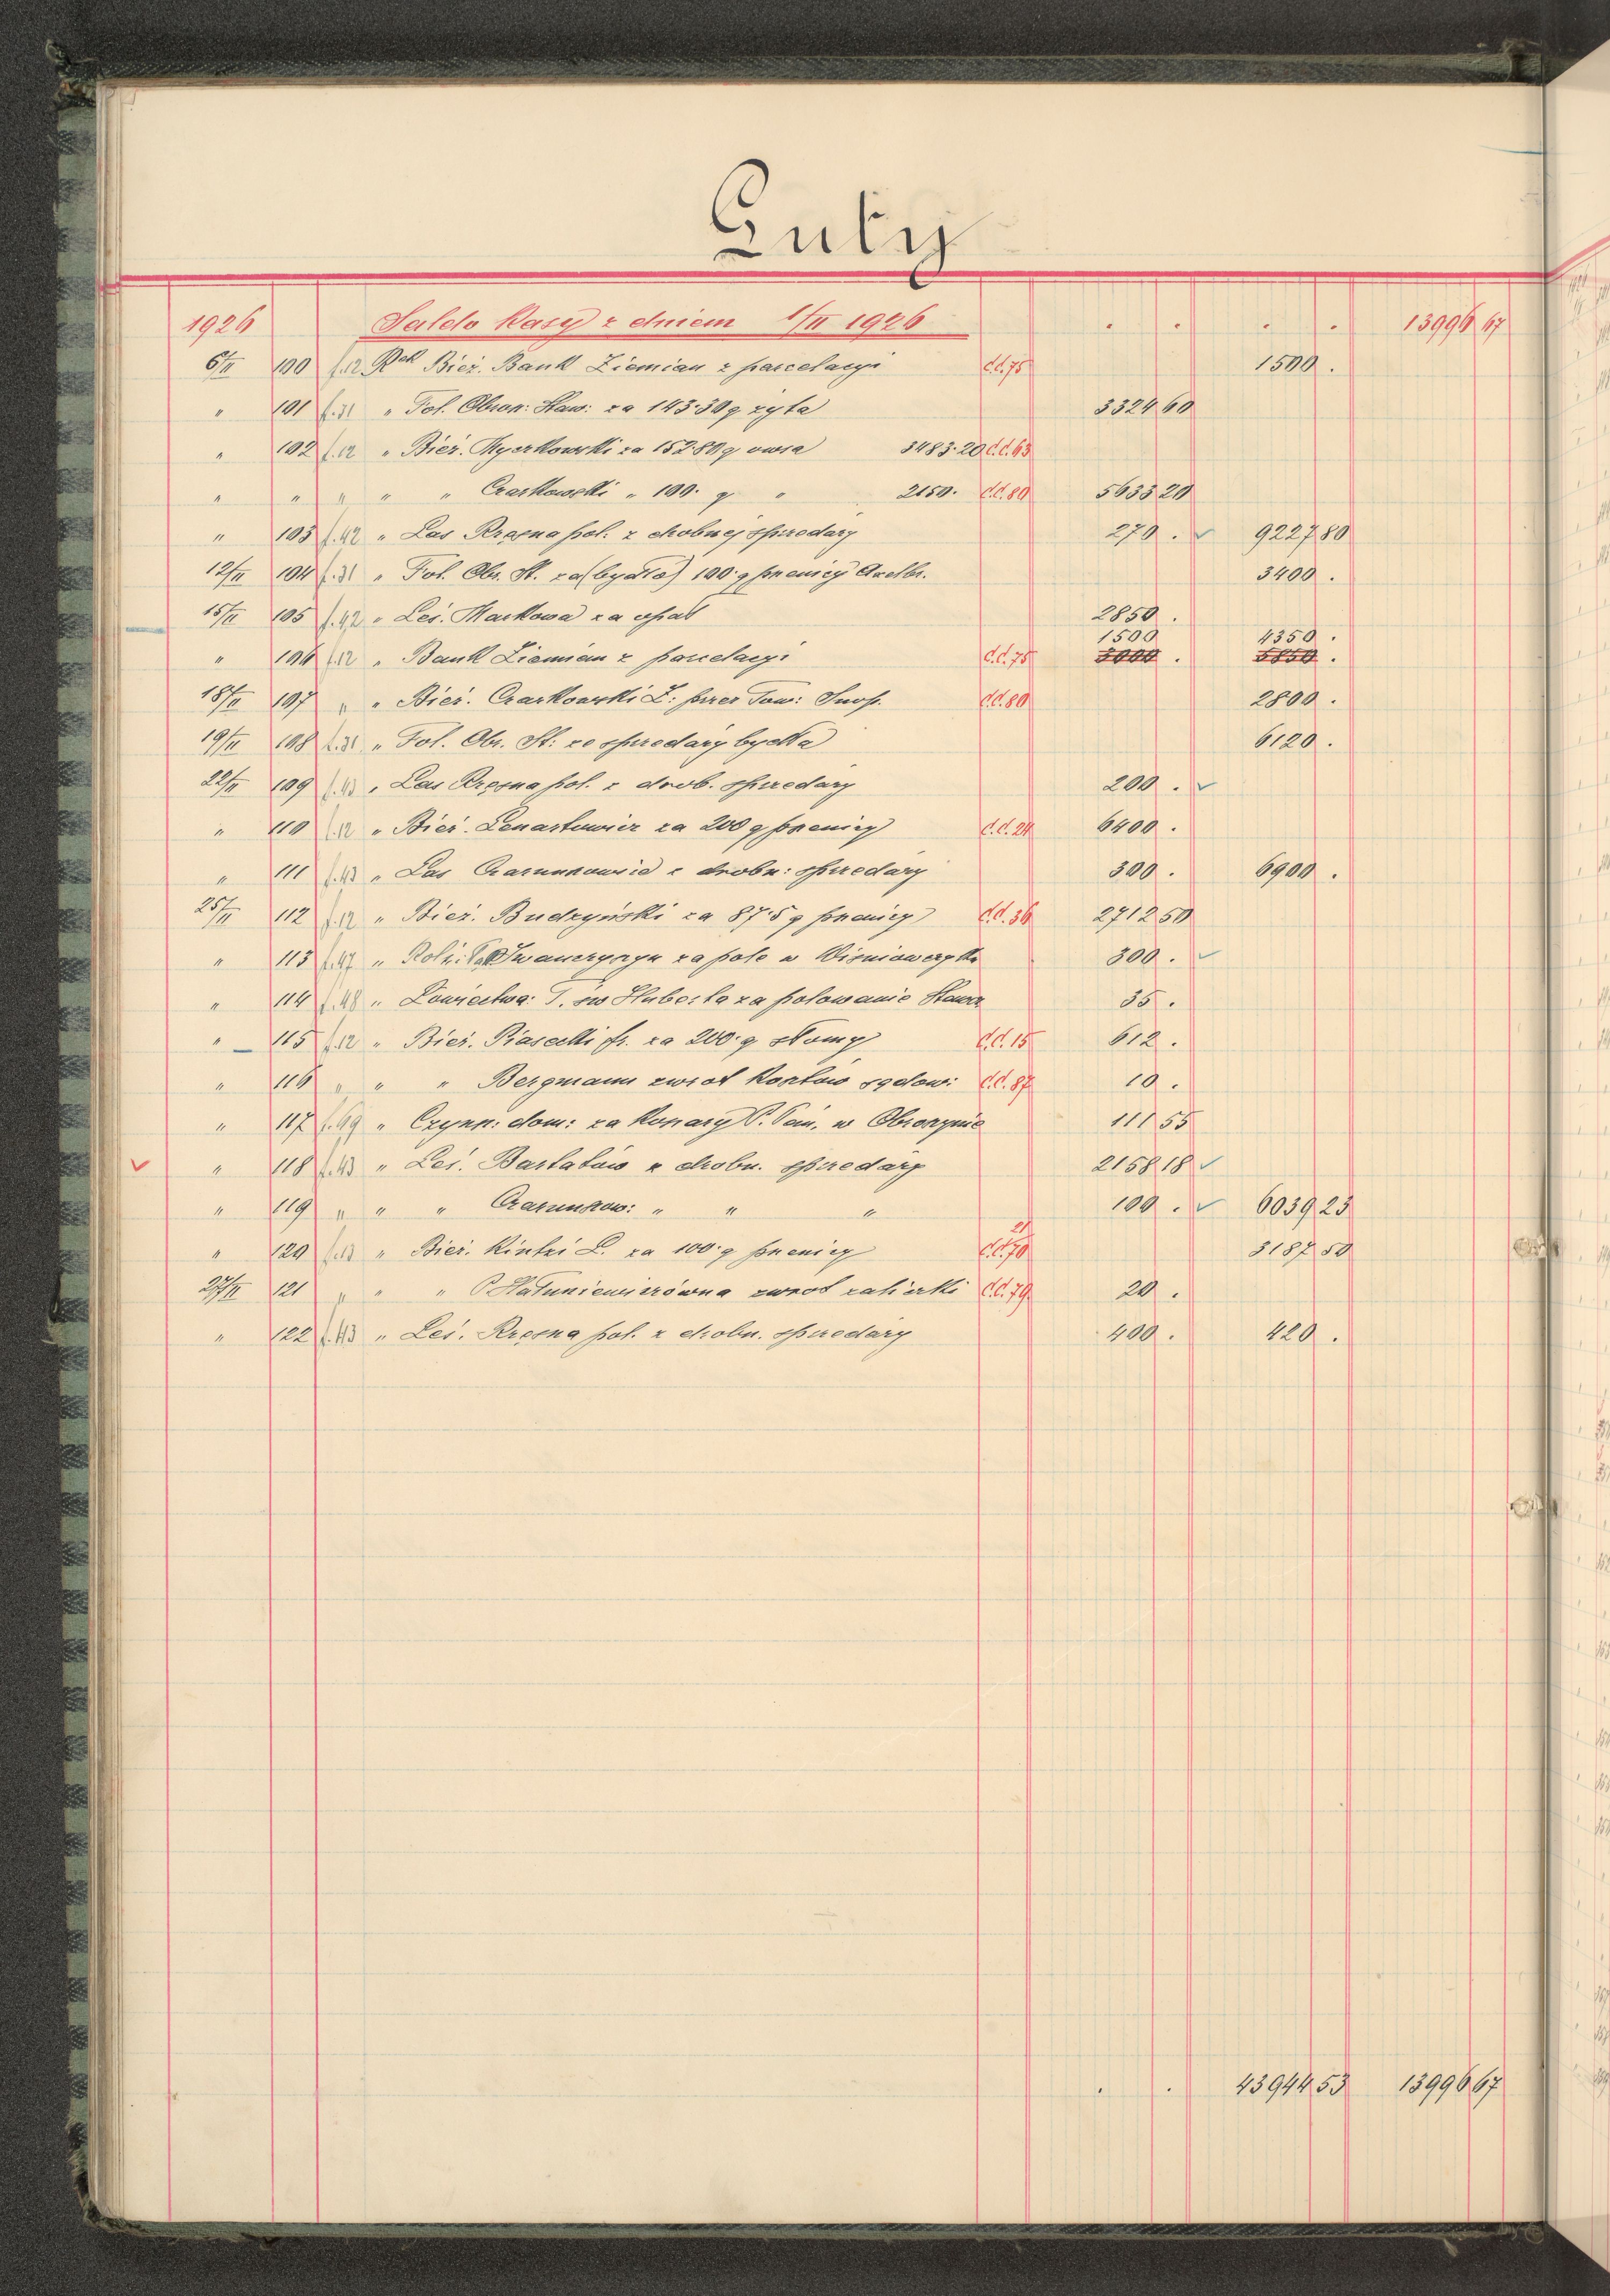 Luty
1926 Saldo Kasy z dniem 1/II 1926 . . . . 13996 67
6/II 100 f.12 Rek Bież. Bank Ziemian z parcelacyi d.d.75 1500 .
" 101 f.31 " Fol. Obron: Staw: za 143·30 q żyta 3324 60
" 102 f.12 " Bież. za 152·80 q owsa 3483·20 d.d.63
" " " " " Czarkowski " 100· q " 2150· d.d.80 5633 20
" 103 f.42 " Las Krzesna pol. z drobnej sprzedaży 270 . 9227 80
12/II 104 f.31 " Fol. Obr. St. za (bydło) 100·q pszenicy Axelbr. 3400 .
15/II 105 f.42 " Leś. Markowa za opał 2850 .
" 106 f.12 " Bank Ziemian z parcelacyi d.d.75 1500 3000 . 4350 . 5850 .
18/II 107 " " Bież. Czarkowski Z: przez Tow: Snop. d.d.80 2800 .
19/II 108 f.31 " Fol. Obr. St: ze sprzedaży bydła 6120 .
22/II 109 f.43 " Las Krzesna pol. z drob. sprzedaży 200 .
" 110 f.12 " Bież. Lenartowicz za 200 q pszenicy d.d.24 6400 .
" 111 f.43 " Las z drobn: sprzedaży 300 . 6900 .
25/II 112 f.12 " Bież. Budzyński za 87·5 q pszenicy d.d.36 2712 50
" 113 f.47 " za pole w 300 .
" 114 f.48 " Łowiectwa: T. św Huberta za polowanie Stawcz 35 .
" 115 f.12 " Bież. Piasecki fr. za 200·q słomy d.d.15 612 .
" 116 " " " Bergmann zwrot kosztów sądow: d.d.87 10 .
" 117 f.49 " Czynn: dom: za konary P. Pan. w Obroszynie 111 55
" 118 f.43 " Leś. Bartatów z drobn. sprzedaży 2158 18
" 119 " " " Czarunkow: " " " 100 . 6039 23
" 120 f.13 " Bież. Kintzi L. za 100·q pszenicy d.d.70 21 3187 50
27/II 121 " " " Hatuniewiczówna zwrot zaliczki d.d.79 20 .
" 122 f.43 " Leś. Krzesna pol. z drobn. sprzedaży 400 . 420 .
. . 43944 53 13996 67